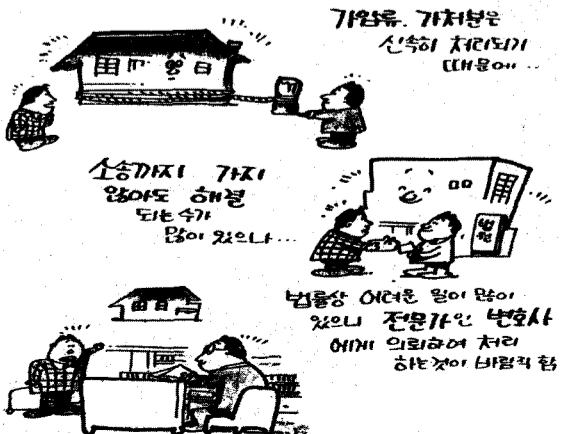 가압류. 가처분은
신속히 처리되기
때문에..
소송까지 가지
않아도 해결
되는 수가
많이 있으나...
법원
법률상 어려운 일이 많이
있으니 전문가인 변호사
에게 의뢰하여 처리
하는것이 바람직 함